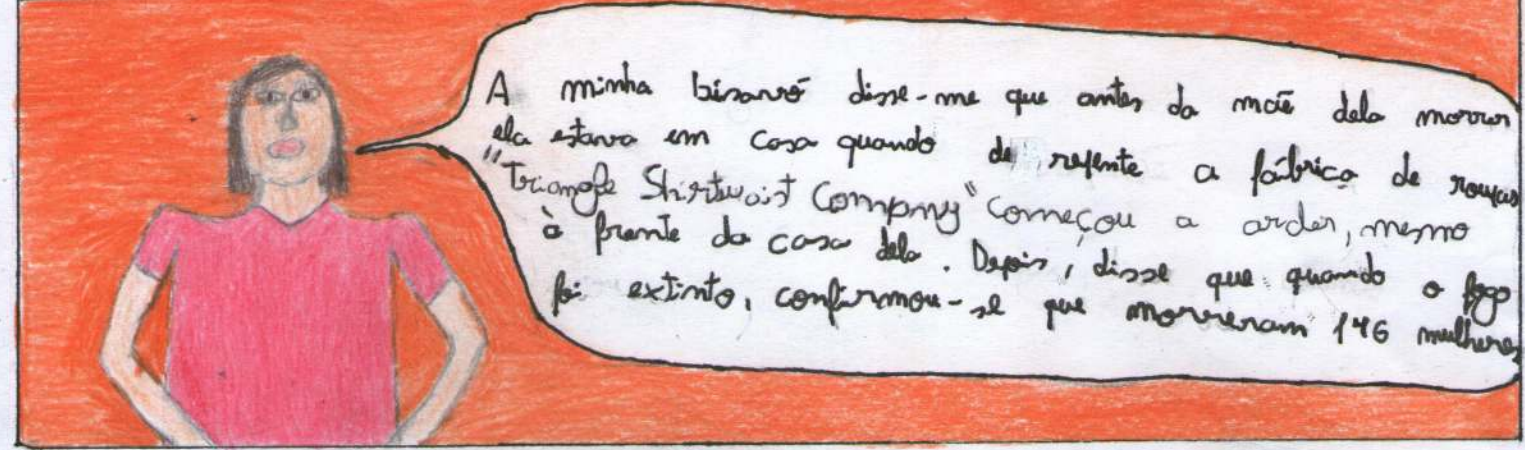 A minha bisavó disse-me que antes da mãe dela morrer
ela estava em casa quando de repente a fábrica de roupas
"Triangle Shirtwaist Company" começou a arder, mesmo
à frente da casa dela. Depois, disse que quando o fogo
foi extinto, confirmou-se que morreram 146 mulheres